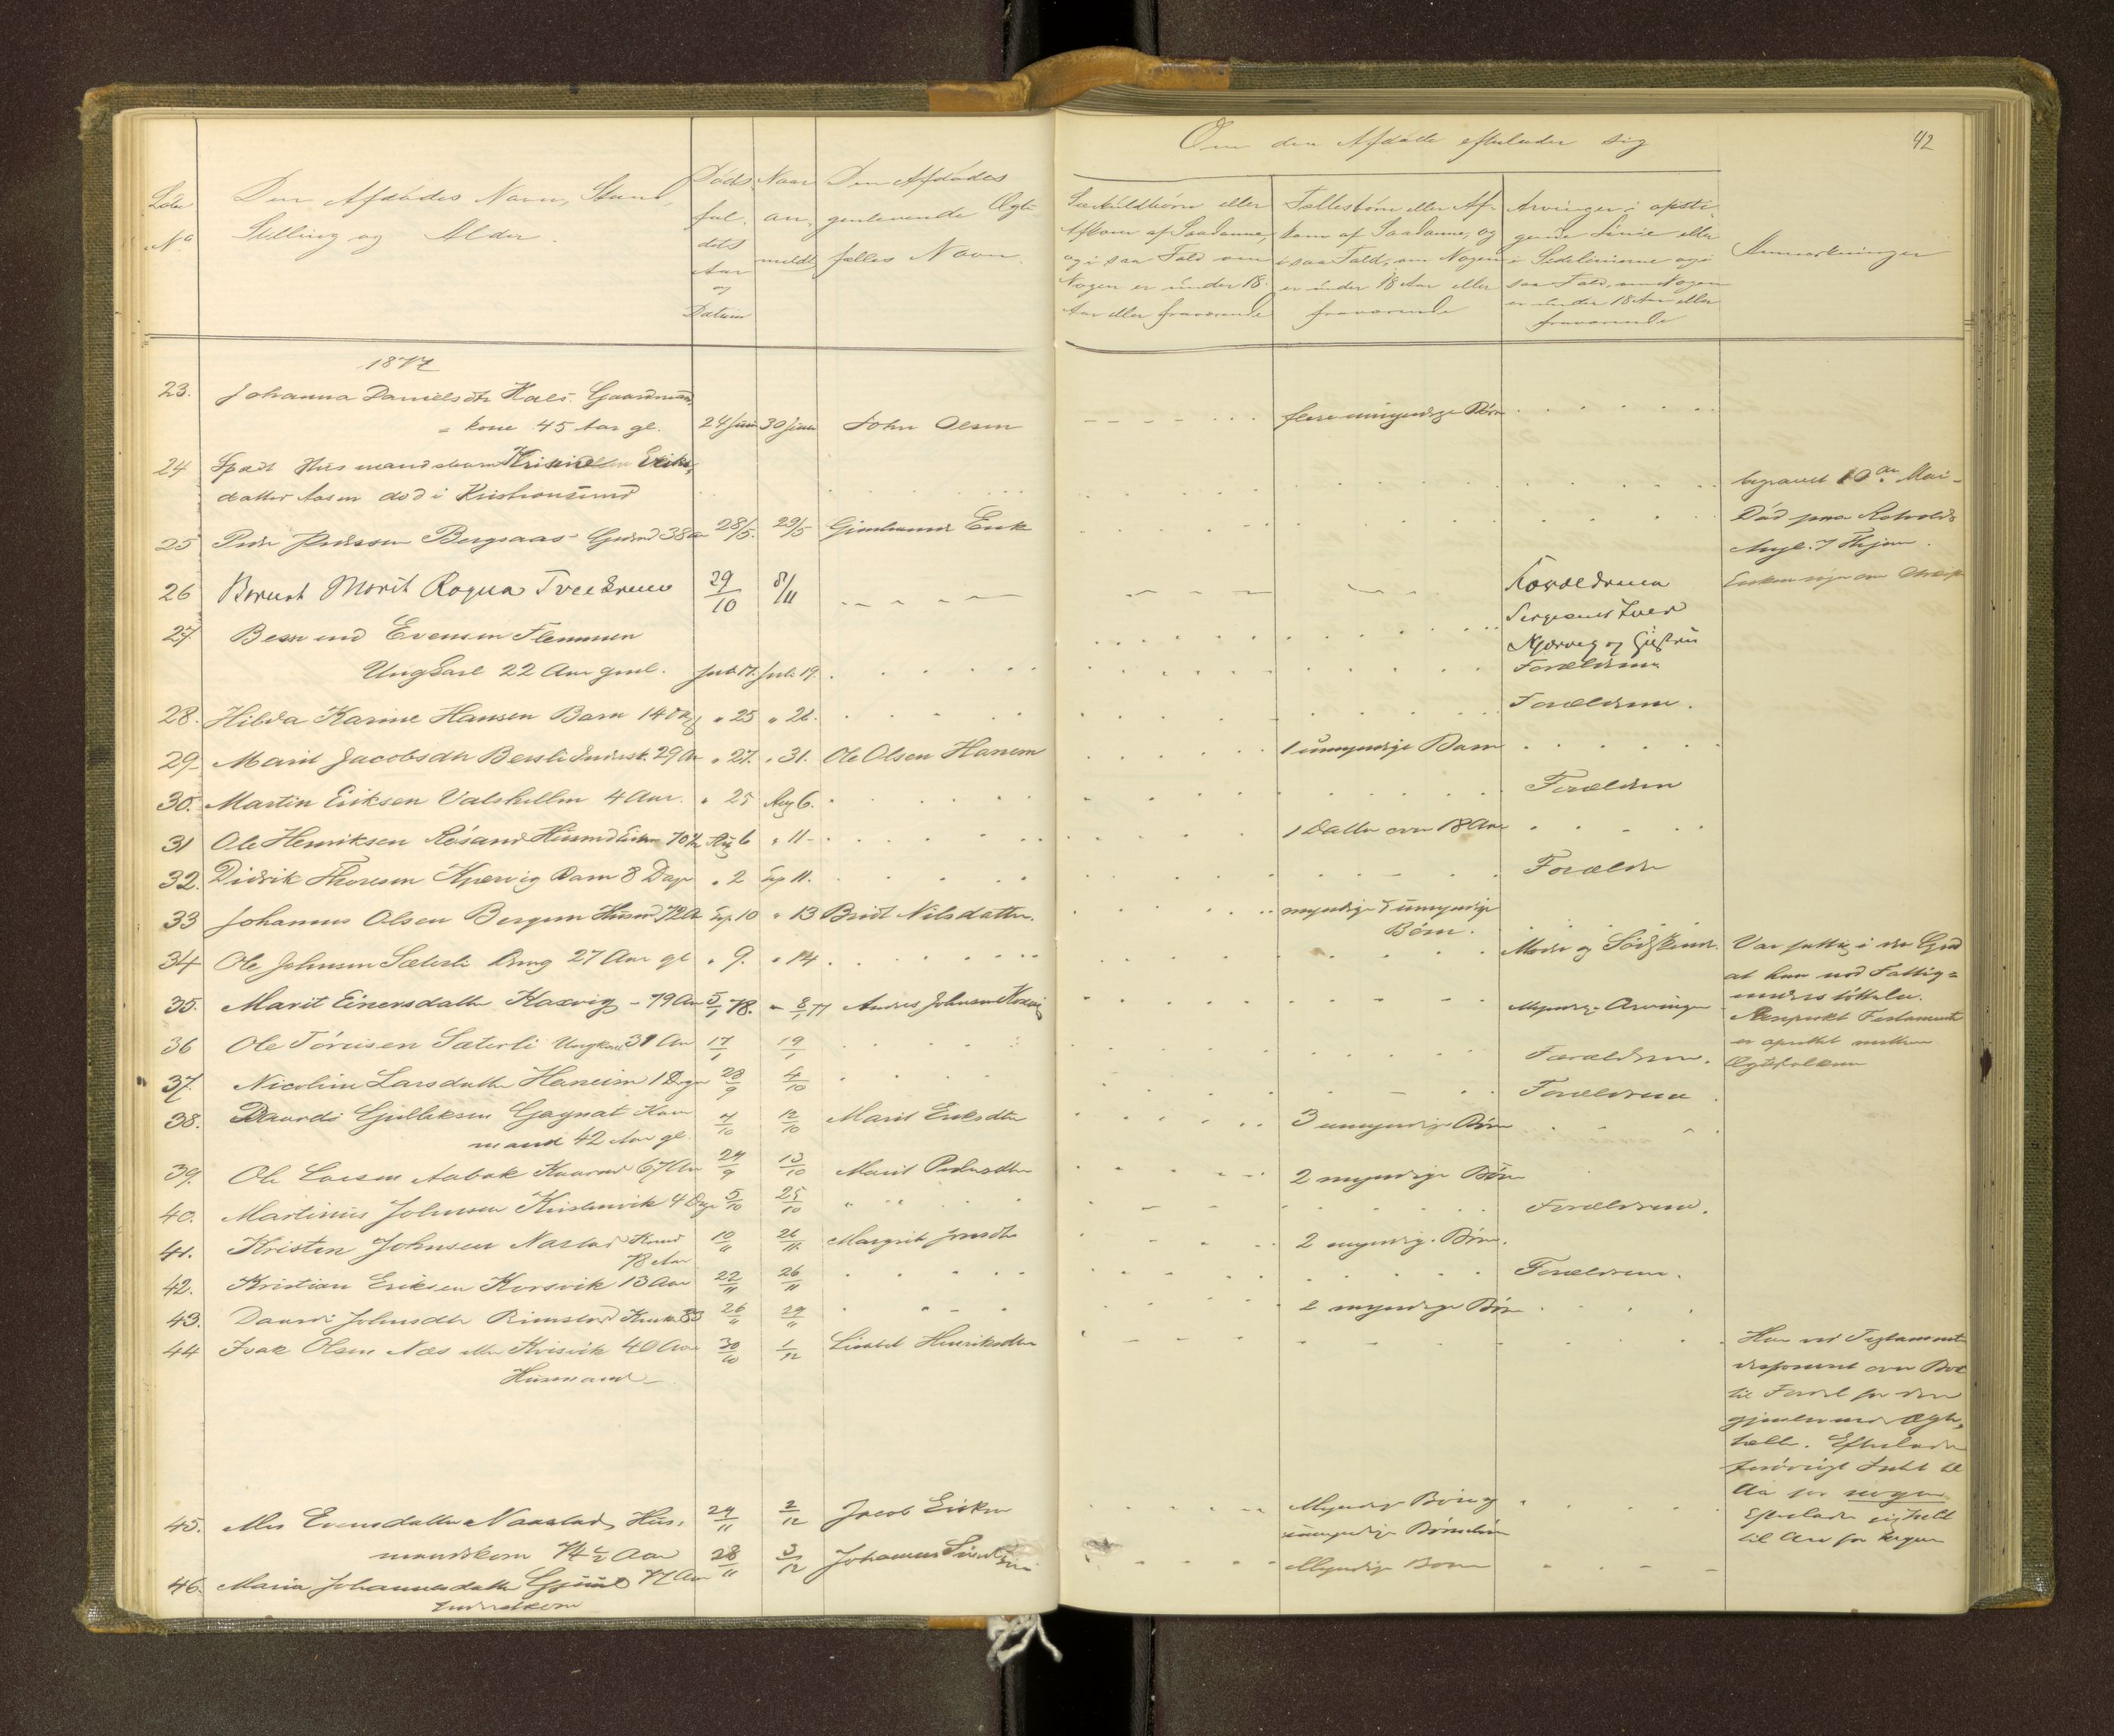 42
Om den Afdøde efterlader sig
Løbe
No
Den Afdødes Navn, Stand,
Stilling og Alder.
Døds
fal.
dets
Aar
og
Datum
Naar
an,
meldt
Den Afdødes
genlevende Ægte
fælles Navn.
Særkuldbørn eller
Afkom af Saadanne,
og i saa Fald om
Nogen er under 18
Aar eller fraværende
Fællesbørn eller Af-
kom af Saadanne, og
i saa Fald, om Nogen
er under 18 Aar eller
fraværende
Arvinger i opsti-
gende Linie eller
i Sidelinierne og i
saa Fald, om Nogen
er under 18 Aar eller
fraværende
Anmærkninger
1877
23. Johanna Danielsdtr Hals. Gaardmands
kone 45 Aar gl. 24 Juni 30 Juni John Olsen flere umyndige Børn
24 Spædt Husmandsbarn Eriks,
datter Aasen død i Kristiansund begravet 10de Mai
25 Peder Pedersen Bergsaas 38 28/5 29/5 Død paa
26 Berent Marit Ragna Tveekrem 29/10 8/11 Forældrene
Sergeant
27 Berend Evensen Flemmen
Ungkarl 22 Aar gml. Juli 17. Juli 19. Forældrene
28. Hilda Karine Hansen Barn 14 Dag " 25 " 26. Forældrene.
29. Marit Jacobsdtr 29 Aar " 27. " 31. Ole Olsen Hanem 1 umyndige Barn
30. Martin Eriksen Valshellen 4 Aar. " 25 Aug 6. Forældren
31 Ole Henriksen Røsand 70 Aug 6 " 11 1 Datter over 18 Aar
32. Didrik Thoresen Kjørvig Barn 8 Dage " 2 Sep 11. Forældre
33 Johannes Olsen Bergem Husmd 72 Aar Sep. 10 " 13 Bridt Nilsdatter. myndige & umyndige
Børn.
34 Ole Johnsen Sæterli 27 Aar gl " 9. " 14 Moder og Sødskende. Var fattig i den Grad
at han nød Fattig=
understøttelse.
35. Marit Einersdatter Kaxvig - 79 Aar 5/1 78. 8/1 77 Anders Johnsen Myndige Arvinger Testamente
er oprettet mellem
Ægtefolkene
36 Ole Toresen Sæterli Ungkarl 31 Aar 17/1 19/1 Forældrene.
37. Nicoline Larsdatter Haneim 1 Dage 28/9 4/10 Forældrene
38. Gagnat
mand 42 Aar gl. 7/10 12/10 Marit Eriksdtr 3 umyndige Børn
39. Ole Larsen Aabak 67 Aar 24/9 13/10 Marit Pedersdtr 2 myndige Børn
40. Martinus Johnsen Kristvik 4 Dage 5/10 25/10 Forældrene.
41. Kristen Johnsen Nastad
78 Aar 10/11 26/11 Margrit Jonsdtr 2 myndige Børn.
42. Kristian Eriksen Korsvik 13 Aar 22/11 26/11 Forældrene.
43. Johnsdtr Rimstad 83 26/11 29/11 2 myndige Børn
44 Isak Olsen Næs eller Kvisvik 40 Aar
Husmand 30/10 1/12 Lisabet Henriksdtr Han ved Testamente
disponeret over Boet
til Fordel for den
gjenlevende Ægte,
fælle. Efterlader
forøvrigt Intet til
Arv for nogen
45. Evensdatter Naastad, Hus,
mandskone 74 1/2 Aar 24/11 2/12 Jacob Eriksen Myndige Børn og
umyndige Børnebørn Efterlader ej Intet
til Arv for nogen
46. Maria Johannesdatter 77 Aar 28/11 3/12 Johannes Myndige Børn